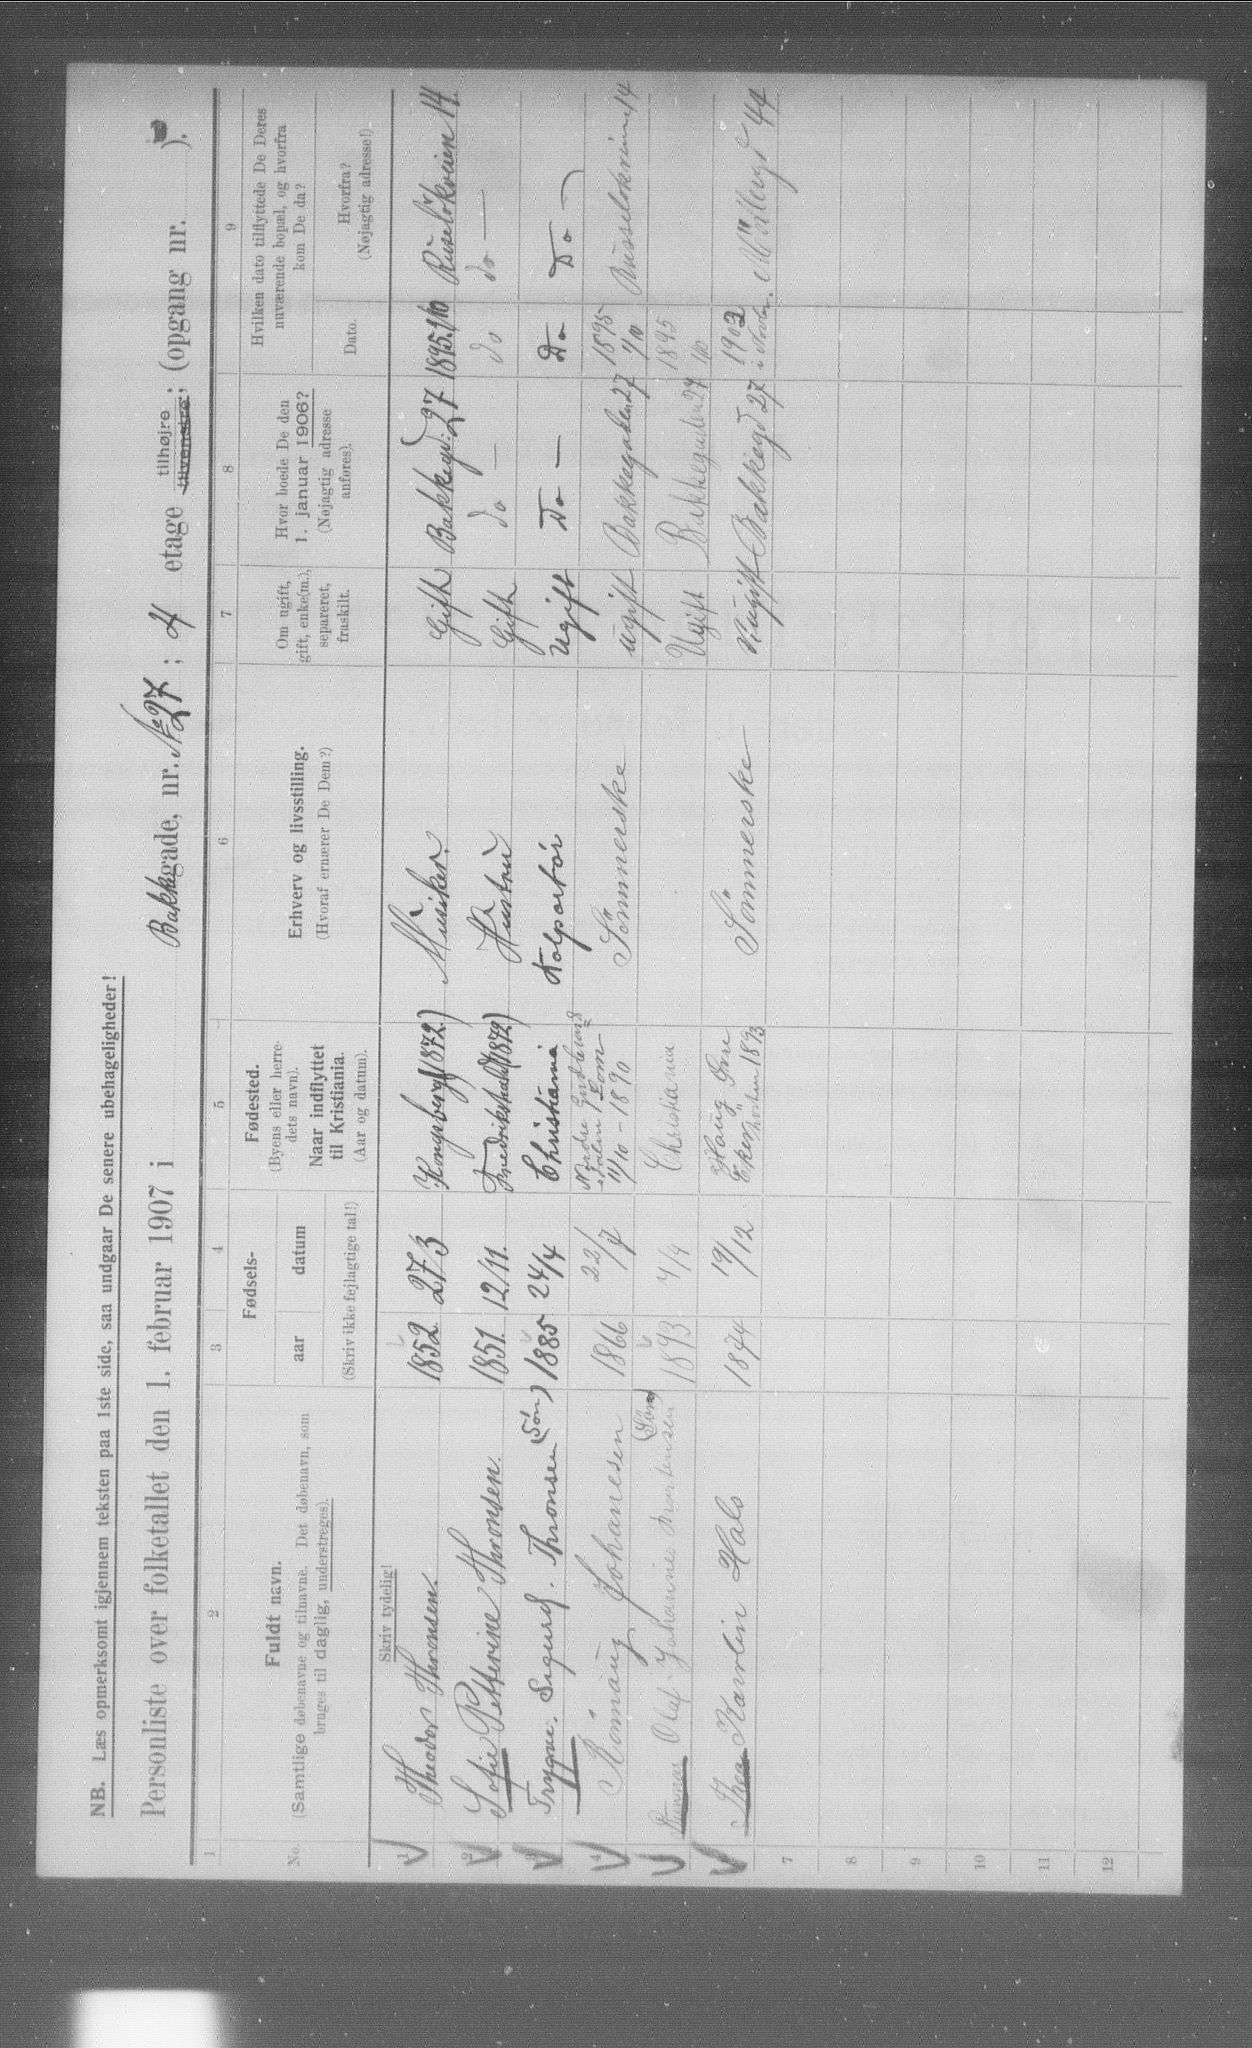 NB. Læs opmerksomt igjennem teksten paa 1ste side, saa undgaar De senere ubehageligheder!
Personliste over folketallet den 1. februar 1907 i Bakkegade, nr. No 27; 4 etage tilhøjre tilvenstre; (opgang nr. ).
1 2 3 4 5 6 7 8 9
No.
Fuldt navn.
(Samtlige døbenavne og tilnavne. Det døbenavn, som
bruges til daglig, understreges).
Fødsels-
aar datum
(Skriv ikke fejlagtige tal!)
Fødested.
(Byens eller herre-
dets navn).
Naar indflyttet
til Kristiania.
(Aar og datum).
Erhverv og livsstilling.
(Hvoraf ernærer De Dem?)
Om ugift,
gift, enke(m.),
separeret,
fraskilt.
Hvor boede De den
1. januar 1906?
(Nøjagtig adresse
anføres).
Hvilken dato tilflyttede De Deres
nuværende bopæl, og hvorfra
kom De da?
Dato.
Hvorfra?
(Nøjagtig adresse!)
Skriv tydelig!
1 Theodor Thronsen. 1852 27/3 Kongsberg (1872) Musiker. Gift Bakkegd: 27 1895 1/10 Ruseløkveien 14.
2 Sofie Petterine Thronsen. 1851. 12/11. Fredrikshald (1872) Hustru Gift do — do do —
3 Trygve. Sigurd. Thronsen (Søn) 1885 24/4 Christiania Kolportør Ugift Do — Do Do —
4 Johanesen 1866 22/7 11/10 - 1890 Sömmerske ugift Bakkegaden 27 1895 1/10 Russeløkveien 14
Olaf Johannes Martensen (Søn) 1893 4/4 Christiania Ugift Bakkegaden 27 1895 1/10
Thea Karolin Hals 1874 19/12 Haug Øvre Eker 1893 Sömmerske Ugift Bakkegd 27 1902 Møllergt 44
7
8
9
10
11
12